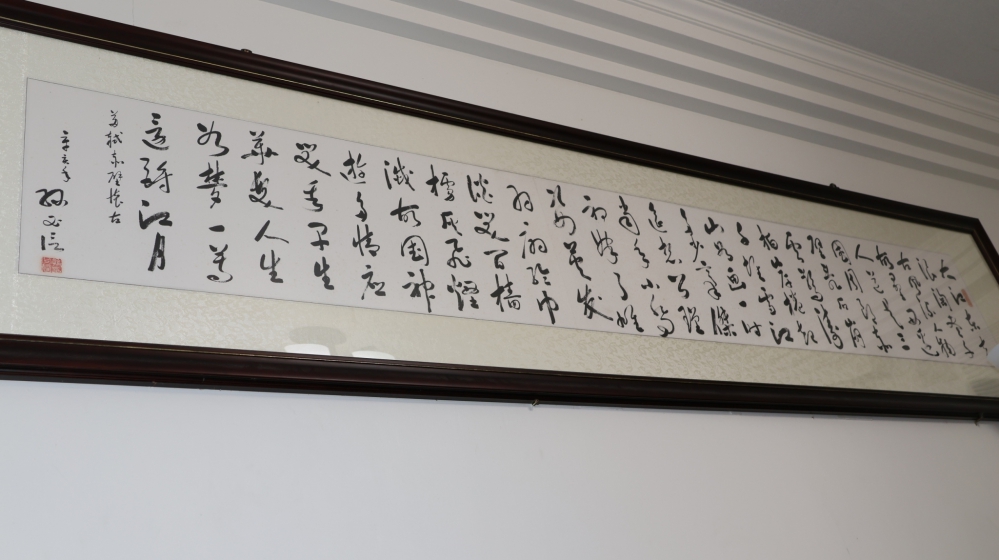 大江东去
浪淘尽千
古风流人物
故垒西边
人道是三
国周郎赤
壁乱石崩
云惊涛
拍岸卷起
千堆雪江
山如画一时
多少豪杰
遥想公瑾
当年小乔
初嫁了雄
姿英发
羽扇纶巾
谈笑间樯
橹灰飞烟
灭故国神
游多情应
笑我早生
华发人生
如梦一尊
还酹江月
苏轼赤壁怀古
辛亥年